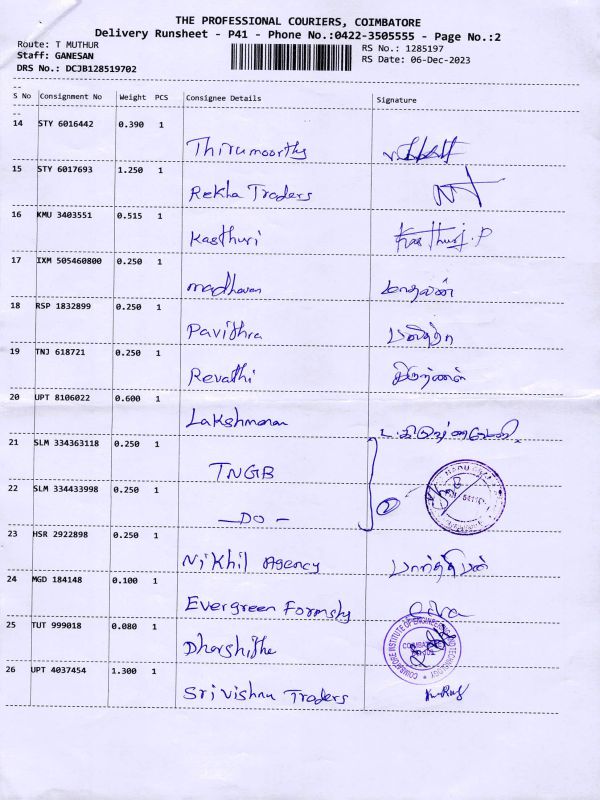 THE PROFESSIONAL COURIERS, COIMBATORE
Delivery Runsheet - P41 - Phone No.:0422-3505555 - Page No.:2
Route: T MUTHUR RS No.: 1285197
Staff: GANESAN RS Date: 06-Dec-2023
DRS No.: DCJB128519702
S No Consignment No Weight PCS Consignee Details Signature
14 STY 6016442 0.390 1
Thirumoorthy
15 STY 6017693 1.250 1
Rekha Traders
16 KMU 3403551 0.515 1
Kasthuri Kasthuri.P
17 IXM 505460800 0.250 1
madhavan மாதவன்
18 RSP 1832899 0.250 1
Pavithra பவித்ரா
19 TNJ 618721 0.250 1
Revathi
20 UPT 8106022 0.600 1
Lakshmanan
21 SLM 334363118 0.250 1
TNGB
22 SLM 334433998 0.250 1
— DO — 2
23 HSR 2922898 0.250 1
Nikhil Agency பார்த்திபன்
24 MGD 184148 0.100 1
Evergreen
25 TUT 999018 0.080 1
COIMBATORE INSTITUTE OF ENGINEERING AND TECHNOLOGY
26 UPT 4037454 1.300 1
Sri Vishnu Traders